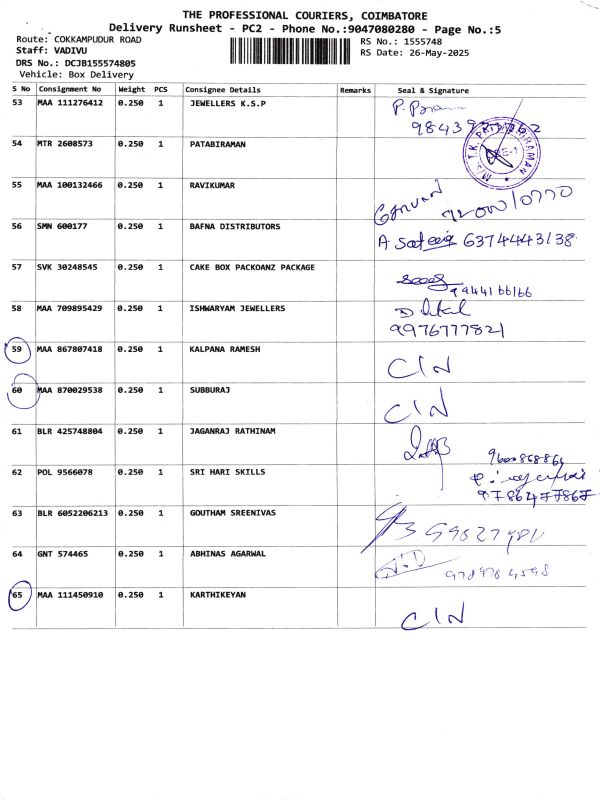 THE PROFESSIONAL COURIERS, COIMBATORE
Delivery Runsheet - PC2 - Phone No.:9047080280 - Page No.:5
Route: COKKAMPUDUR ROAD
RS No.: 1555748
Staff: VADIVU
RS Date: 26-May-2025
DRS No.: DCJB155574805
Vehicle: Box Delivery
S No Consignment No Weight PCS Consignee Details Remarks Seal & Signature
53 MAA 111276412 0.250 1 JEWELLERS K.S.P
54 MTR 2608573 0.250 1 PATABIRAMAN
55 MAA 100132466 0.250 1 RAVIKUMAR
56 SMN 600177 0.250 1 BAFNA DISTRIBUTORS
6374443138
57 SVK 30248545 0.250 1 CAKE BOX PACKOANZ PACKAGE
9944166166
58 MAA 709895429 0.250 1 ISHWARYAM JEWELLERS
9976777821
59 MAA 867807418 0.250 1 KALPANA RAMESH
C/N
60 MAA 870029538 0.250 1 SUBBURAJ
C/N
61 BLR 425748804 0.250 1 JAGANRAJ RATHINAM
62 POL 9566078 0.250 1 SRI HARI SKILLS
63 BLR 6052206213 0.250 1 GOUTHAM SREENIVAS
64 GNT 574465 0.250 1 ABHINAS AGARWAL
65 MAA 111450910 0.250 1 KARTHIKEYAN
C/N